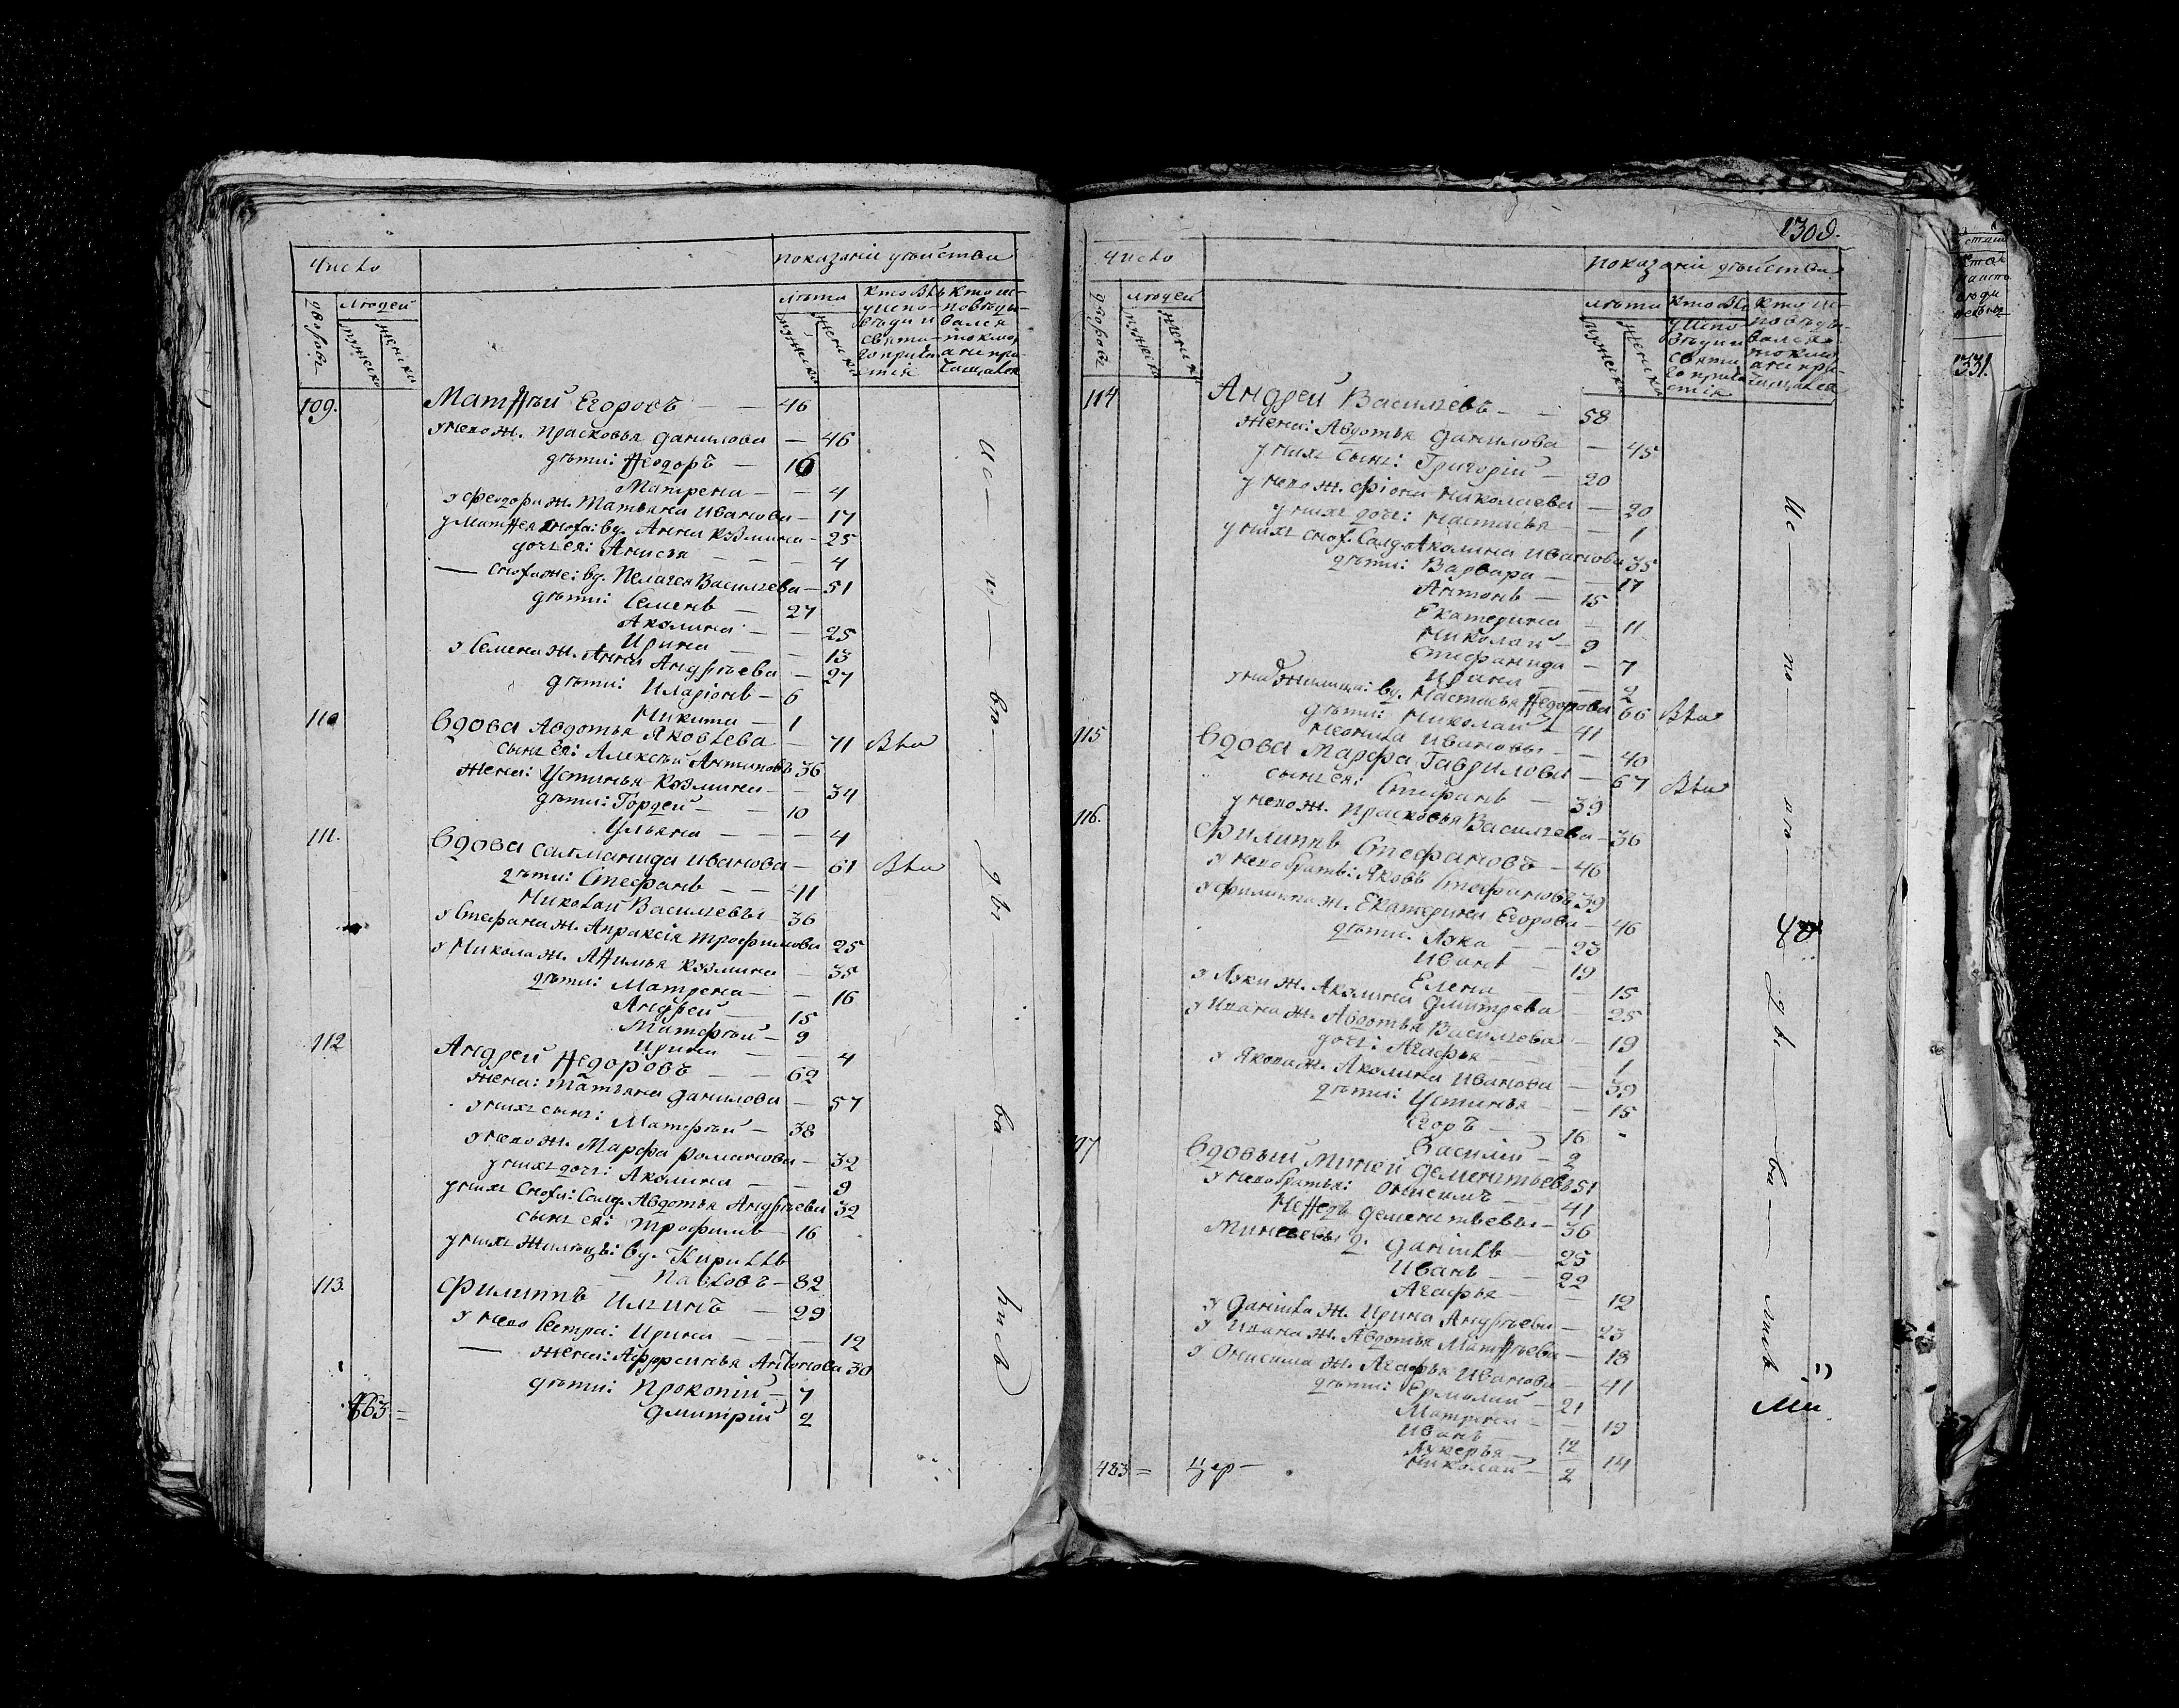 Число
показаніи дѣйства
дворовъ
людей
мужска
женска
лѣта
мужска
женска
109.
Матѳѣй Егоровъ — — 46
у него ж. Прасковья Данилова — 46
дѣти: Ѳеодоръ — 16
Матрена — — 4
у Феодора ж. Татьяна Иванова — 17
у Матѳея сноха: вд. Анна Козмина — 25
дочь ея: Анисья — — 4
— сноха же: вд. Пелагея Василгева — 51
дѣти: Семенъ — 27
Акилина — — 25
Ирина — — 13
у Семена ж. Анна Андрѣева — 27
дѣти: Иларіонъ — 6
Никита — 1
110
Вдова Авдотья Яковлева — 71
сынъ ея: Алексѣй Антиповъ 36
жена: Устинья Козмина — 34
дѣти: Гордей — 10
Ульяна — — — 4
111.
Вдова Саламанида Иванова — 61
дѣти: Стефанъ — — 41
Николай Василгевы — 36
у Стефана ж. Апраксія Трофимова 25
у Никола ж. Аѳимья Козмина — 35
дѣти: Матрена — — 16
Андрей — 15
Матфѣй — 9
Ирина — — 4
112
Андрей Ѳедоровъ — — 62
жена: Татьяна Данилова — 57
у нихъ сынъ: Матфѣй — 38
у него ж. Марфа Романова — 32
у нихъ дочь: Акилина — — 9
у нихъ сноха: салд. Авдотья Андрѣева 32
сынъ ея: Трофимъ — 16
у нихъ жилецъ: вд. Кириллъ
Павловъ — 82
113.
Филиппъ Илгинъ — 29
у него сестра: Ирина — — 12
— жена: Аффросинья Антонова 30
дѣти: Прокопій — 7
Дмитрій 2
463 =
Ис — по — вѣ — дѣ — ва — ни
1309.
Число
показаніи дѣйства
дворовъ
людей
мужска
женска
лѣта
мужска
женска
114
Андрей Василгевъ — — 58
жена: Авдотья Данилова — 45
у нихъ сынъ: Григорій — 20
у него ж. Фіона Николаева — 20
у нихъ дочь: Настасья — — 1
у нихъ сноха салд. Акилина Иванова 35
дѣти: Варвара — — 17
Антонъ — 15
Екатерина — 11
Николай — 9
Стефанида — 7
Ирина — — 2
жилица: вд. Настасья Ѳедорова 66
дѣти: Николай — 41
Ивановы — — 40
115
Вдова Марфа Гаврилова — 67
сынъ ея: Стефанъ — 39
у него ж. Прасковья Василгева — 36
116.
Филиппъ Стефановъ — 46
у него братъ: Яковъ Стефановъ 39
у Филиппа ж. Екатерина Егорова — 46
дѣти: Лука — — 23
Иванъ — 19
Елена — — 15
у Луки ж. Акилина Дмитрева — 25
у Ивана ж. Авдотья Василгева — 19
дочь: Агафья — — 1
у Якова ж. Акилина Иванова — 39
дѣти: Устинья — — 15
Егоръ — — 16
Василій — 2
117
Вдовый Миней Дементьевъ 51
у него братья: Онисимъ — 41
Дементьевы — 36
Минеевы д. Данилъ — 25
Иванъ — — 22
Агафья — — 12
у Данила ж. Ирина Андрѣева — 23
у Ивана ж. Авдотья Матѳѣева — 18
у Онисима ж. Агафья Иванова — 41
дѣти: Ермолай — 21
Матрена — 19
Иванъ — 12
Лукерья — 14
Николай — 2
483 =
Цер —
331.